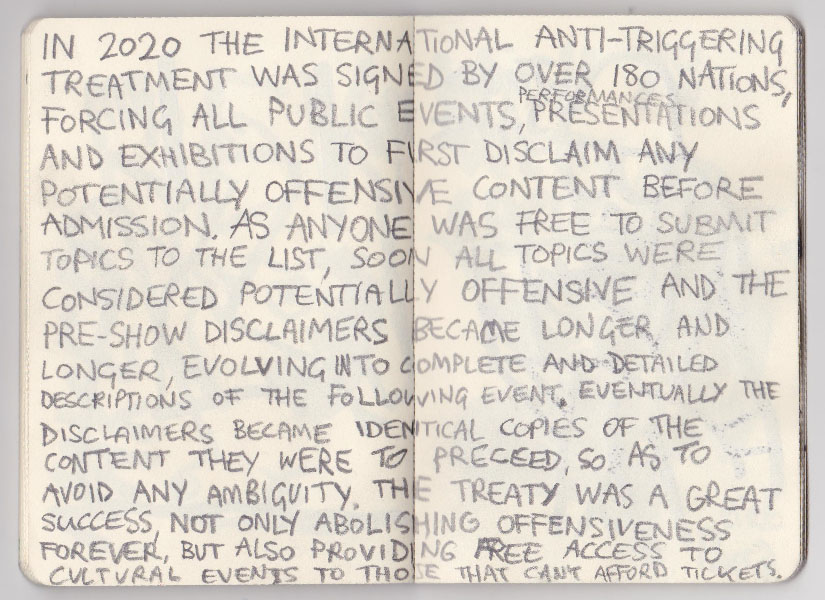 IN 2020 THE INTERNATIONAL ANTI-TRIGGERING
TREATMENT WAS SIGNED BY OVER 180 NATIONS,
PERFORMANCES,
FORCING ALL PUBLIC EVENTS, PRESENTATIONS
AND EXHIBITIONS TO FIRST DISCLAIM ANY
POTENTIALLY OFFENSIVE CONTENT BEFORE
ADMISSION. AS ANYONE WAS FREE TO SUBMIT
TOPICS TO THE LIST, SOON ALL TOPICS WERE
CONSIDERED POTENTIALLY OFFENSIVE AND THE
PRE-SHOW DISCLAIMERS BECAME LONGER AND
LONGER, EVOLVING INTO COMPLETE AND DETAILED
DESCRIPTIONS OF THE FOLLOWING EVENT. EVENTUALLY THE
DISCLAIMERS BECAME IDENTICAL COPIES OF THE
CONTENT THEY WERE TO PRECEED, SO AS TO
AVOID ANY AMBIGUITY. THE TREATY WAS A GREAT
SUCCESS, NOT ONLY ABOLISHING OFFENSIVENESS
FOREVER, BUT ALSO PROVIDING FREE ACCESS TO
CULTURAL EVENTS TO THOSE THAT CAN'T AFFORD TICKETS.